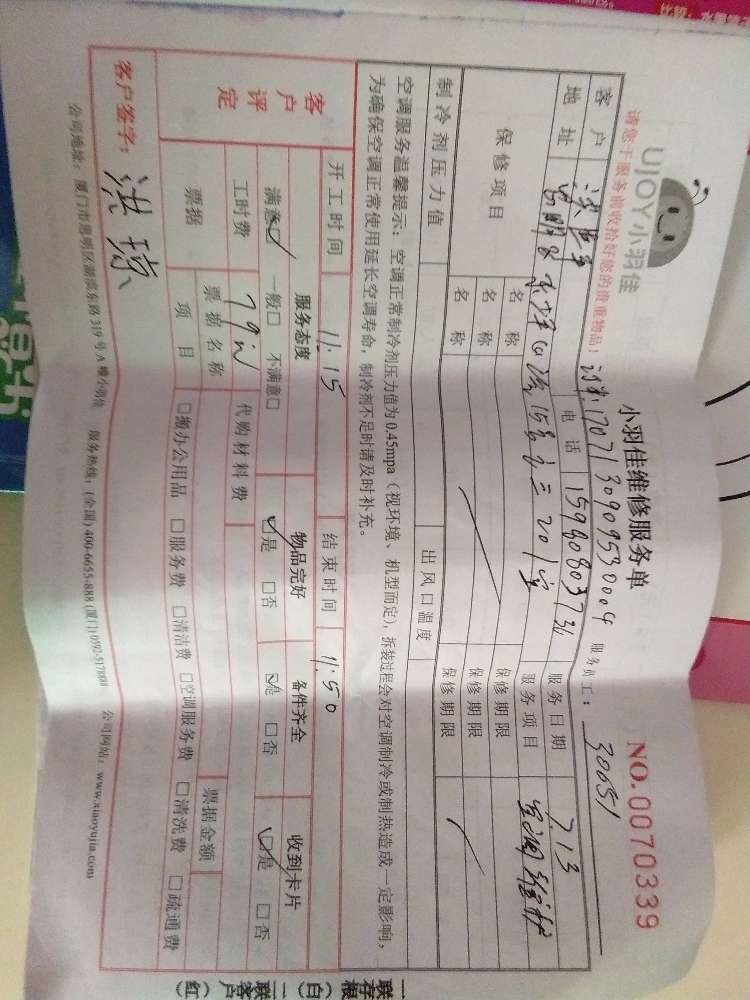 UJOY小羽佳
小羽佳维修服务单
NO.0070339
请您于服务前收拾好您的贵重物品！
1707130909530004 服务员工：30651
客户 电话 15980803736 服务日期 7.13
地址 15号 201室 服务项目 空调维护
保修项目 名称 保修期限
名称 保修期限
名称 保修期限
制冷剂压力值 出风口温度
空调服务温馨提示：空调正常制冷剂压力值为0.45mpa（视环境、机型而定），拆装过程会对空调制冷或制热造成一定影响，
为确保空调正常使用延长空调寿命，制冷剂不足时请及时补充。
开工时间 11:15 结束时间 11:50
客户评定 服务态度 物品完好 备件齐全 收到卡片
满意☑ 一般□ 不满意□ ☑是 □否 ☑是 □否 ☑是 □否
工时费 79 代购材料费
票据 票据名称 票据金额
项目 □搬办公用品 □服务费 □清洁费 □空调服务费 □清洗费 □疏通费
客户签字：洪琦
公司地址：厦门市思明区湖滨东路319号A幢小羽佳 服务热线：(全国) 400-6655-888 (厦门) 0592-5178888 公司网站：www.xiaoyujia.com
一联存根（白） 二联客户（红）